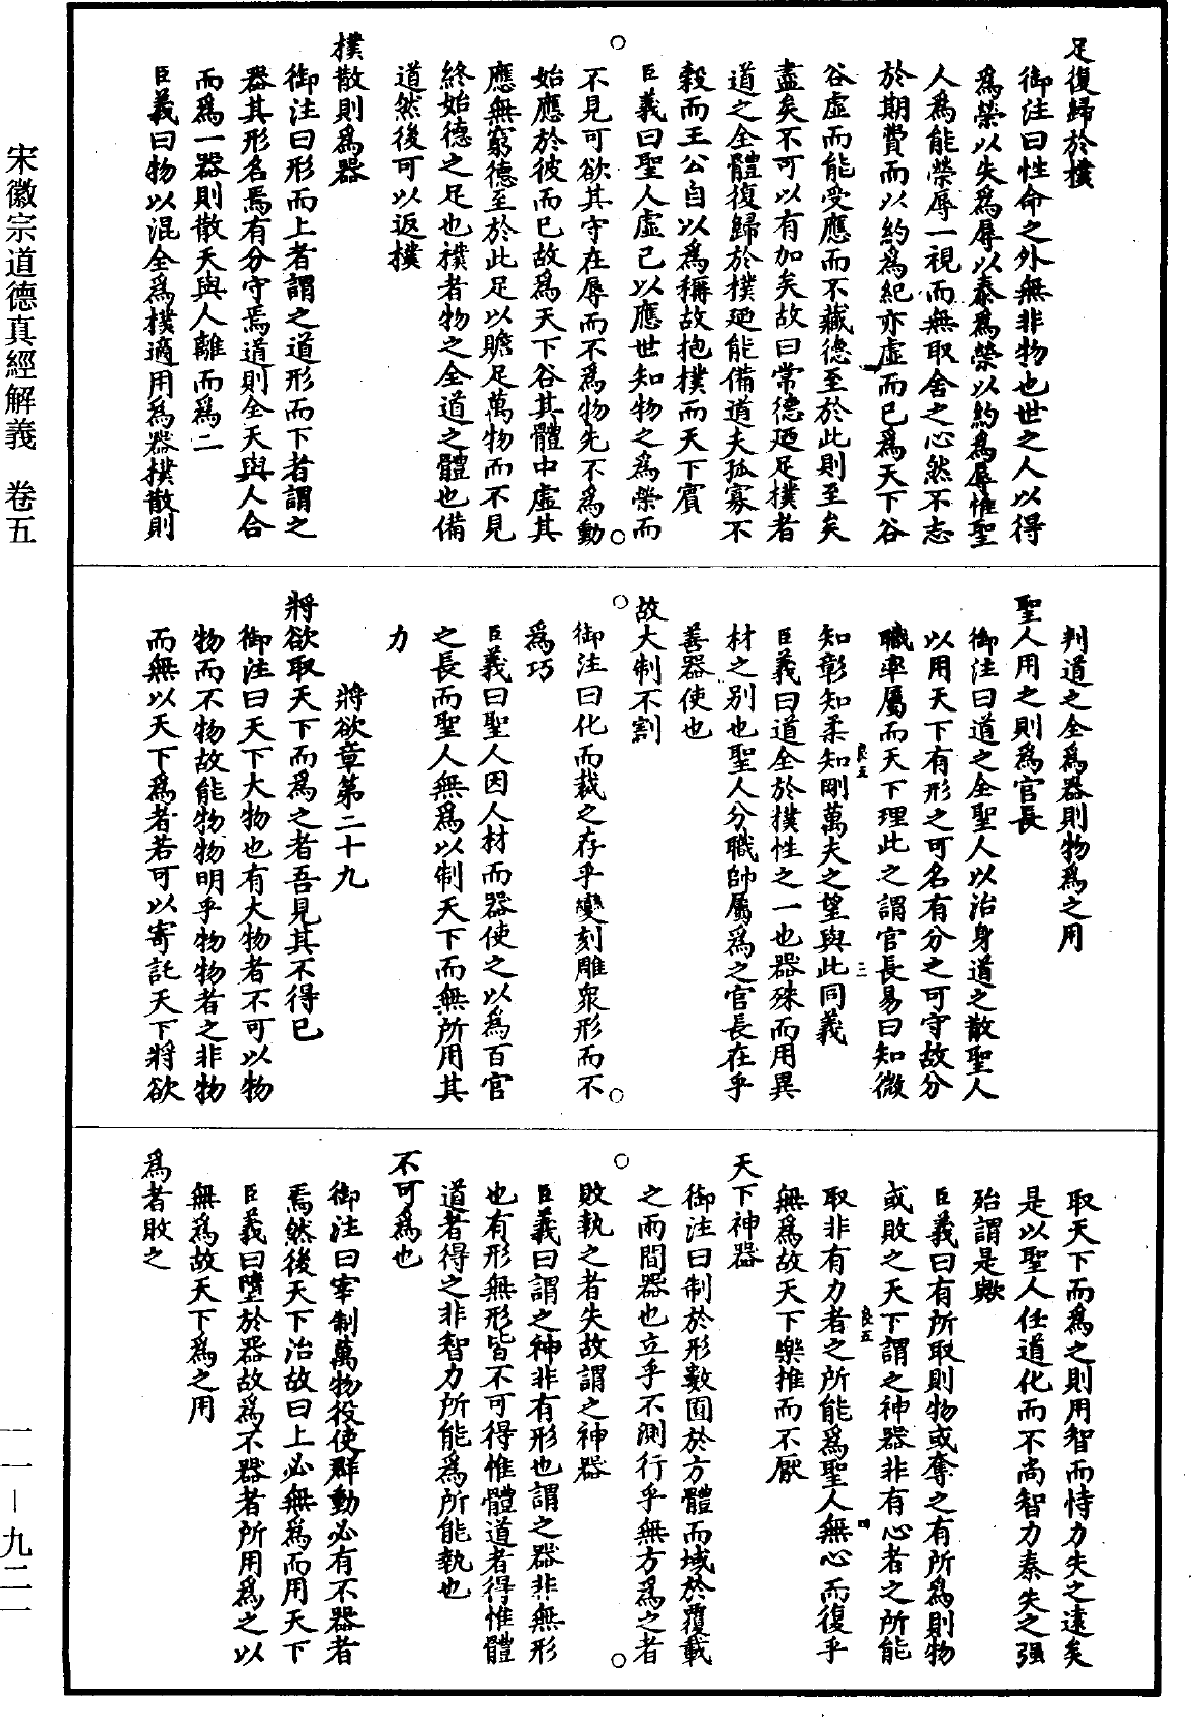 足復歸於樸
御注曰性命之外無非物也世之人以得
爲榮以失爲辱以泰爲榮以約爲辱惟聖
人爲能榮辱一視而無取舍之心然不志
於期費而以約爲紀亦虛而已爲天下谷
谷虛而能受應而不藏德至於此則至矣
盡矣不可以有加矣故曰常德廼足樸者
道之全體復歸於樸廼能備道夫孤寡不
穀而王公自以爲稱故抱樸而天下賓
臣義曰聖人虛己以應世知物之爲榮而
不見可欲其守在辱而不爲物先不爲動
始應於彼而已故爲天下谷其體中虛其
應無窮德至於此足以贍足萬物而不見
終始德之足也樸者物之全道之體也備
道然後可以返樸
樸散則爲器
御注曰形而上者謂之道形而下者謂之
器其形名焉有分守焉道則全天與人合
而爲一器則散天與人離而爲二
臣義曰物以混全爲樸適用爲器樸散則
判道之全爲器則物爲之用
聖人用之則爲官長
御注曰道之全聖人以治身道之散聖人
以用天下有形之可名有分之可守故分
職率屬而天下理此之謂官長易曰知微
知彰知柔知剛萬夫之望與此同義
良五
三
臣義曰道全於樸性之一也器殊而用異
材之別也聖人分職帥屬爲之官長在乎
善器使也
故大制不割
御注曰化而裁之存乎變刻雕衆形而不
爲巧
臣義曰聖人因人材而器使之以爲百官
之長而聖人無爲以制天下而無所用其
力
將欲章第二十九
將欲取天下而爲之者吾見其不得已
御注曰天下大物也有大物者不可以物
物而不物故能物物明乎物物者之非物
而無以天下爲者若可以寄託天下將欲
取天下而爲之則用智而恃力失之遠矣
是以聖人任道化而不尚智力秦失之强
殆謂是歟
臣義曰有所取則物或奪之有所爲則物
或敗之天下謂之神器非有心者之所能
良五
四
取非有力者之所能爲聖人無心而復乎
無爲故天下樂推而不厭
天下神器
御注曰制於形數囿於方體而域於覆載
之兩間器也立乎不測行乎無方爲之者
敗執之者失故謂之神器
臣義曰謂之神非有形也謂之器非無形
也有形無形皆不可得惟體道者得惟體
道者得之非智力所能爲所能執也
不可爲也
御注曰宰制萬物役使群動必有不器者
焉然後天下治故曰上必無爲而用天下
臣義曰墮於器故爲不器者所用爲之以
無爲故天下爲之用
爲者敗之
宋徽宗道德真經解義 卷五
一一—九二一